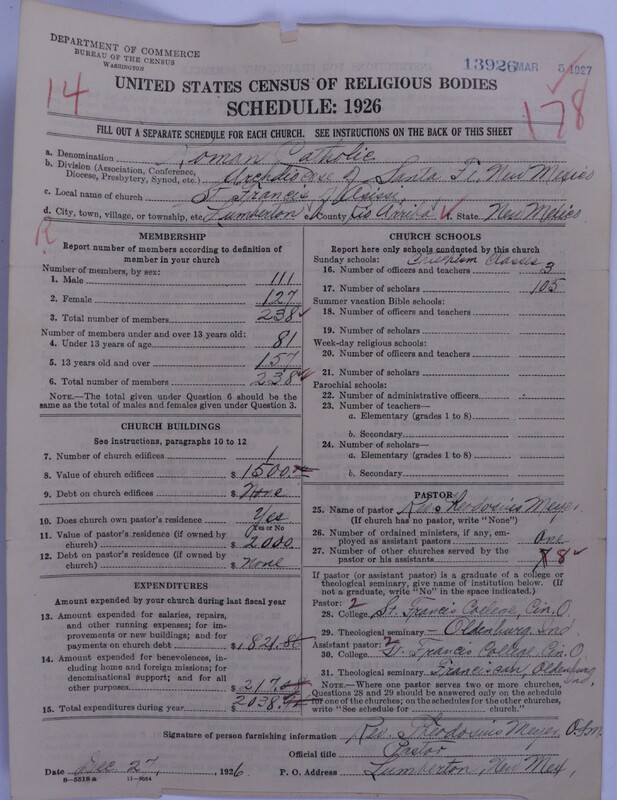 DEPARTMENT OF COMMERCE
BUREAU OF THE CENSUS
WASHINGTON
13926 MAR 5 1927
14
178
UNITED STATES CENSUS OF RELIGIOUS BODIES
SCHEDULE: 1926
FILL OUT A SEPARATE SCHEDULE FOR EACH CHURCH. SEE INSTRUCTIONS ON THE BACK OF THIS SHEET
a. Denomination Roman Catholic
b. Division (Association, Conference, Diocese, Presbytery, Synod, etc.) Archdiocese of Santa Fe, New Mexico
c. Local name of church St. Francis of Assisi
d. City, town, village, or township, etc. Lumberton e. County Rio Arriba f. State. New Mexico
R
MEMBERSHIP
Report number of members according to definition of
member in your church
Number of members, by sex:
1. Male 111
2. Female 127
3. Total number of members 238
Number of members under and over 13 years old:
4. Under 13 years of age 81
5. 13 years old and over 157
6. Total number of members 238
NOTE.—The total given under Question 6 should be the
same as the total of males and females given under Question 3.
CHURCH BUILDINGS
See instructions, paragraphs 10 to 12
7. Number of church edifices 1
8. Value of church edifices $ 1500.
9. Debt on church edifices $ None
10. Does church own pastor's residence Yes
Yes or No
11. Value of pastor's residence (if owned by
church) $ 2000
12. Debt on pastor's residence (if owned by
church) $ None
EXPENDITURES
Amount expended by your church during last fiscal year
13. Amount expended for salaries, repairs,
and other running expenses; for im-
provements or new buildings; and for
payments on church debt $ 1821.80
14. Amount expended for benevolences, in-
cluding home and foreign missions; for
denominational support; and for all
other purposes $ 217.
15. Total expenditures during year $ 2038.
CHURCH SCHOOLS
Report here only schools conducted by this church
Sunday schools: Classes
16. Number of officers and teachers 3
17. Number of scholars 105
Summer vacation Bible schools:
18. Number of officers and teachers
19. Number of scholars
Week-day religious schools:
20. Number of officers and teachers
21. Number of scholars
Parochial schools:
22. Number of administrative officers
23. Number of teachers—
a. Elementary (grades 1 to 8)
b. Secondary
24. Number of scholars—
a. Elementary (grades 1 to 8)
b. Secondary
PASTOR
25. Name of pastor Rev. Theodosius Meyer,
(If church has no pastor, write "None")
26. Number of ordained ministers, if any, em-
ployed as assistant pastors One
27. Number of other churches served by the
pastor or his assistants 8
If pastor (or assistant pastor) is a graduate of a college or
theological seminary, give name of institution below. (If
not a graduate, write "No" in the space indicated.)
Pastor: 2
28. College St. Francis College, Cin. O.
29. Theological seminary Oldenburg, Ind
Assistant pastor: 2
30. College St. Francis College, Cin. O.
31. Theological seminary Franciscan, Oldenburg Ind.
NOTE.—Where one pastor serves two or more churches,
Questions 28 and 29 should be answered only on the schedule
for one of the churches; on the schedules for the other churches,
write "See schedule for church."
Signature of person furnishing information Rev. Theodosius Meyer, O.F.M.
Official title Pastor
Date Dec. 27, 1926. P. O. Address Lumberton, New Mex,
8—5518 a 11—9664